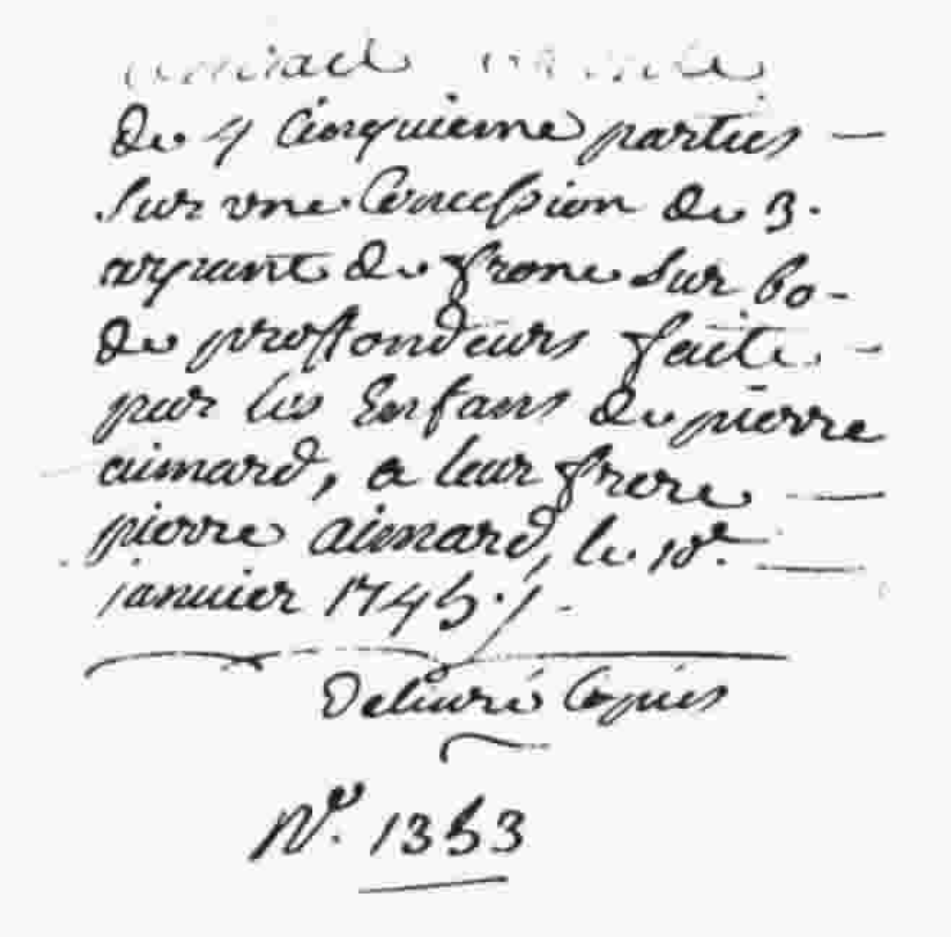 Contract vente
De 4 Cinquieme parties —
Sur vne Concession de 3.
arpant de frone Sur 60 -
De proffondeurs faite. -
par les Enfans de pierre
aimard, a leur frere —
pierre aimard, le 10e. —
januier 1745 ./. -
Deliuré Copies
No. 1353